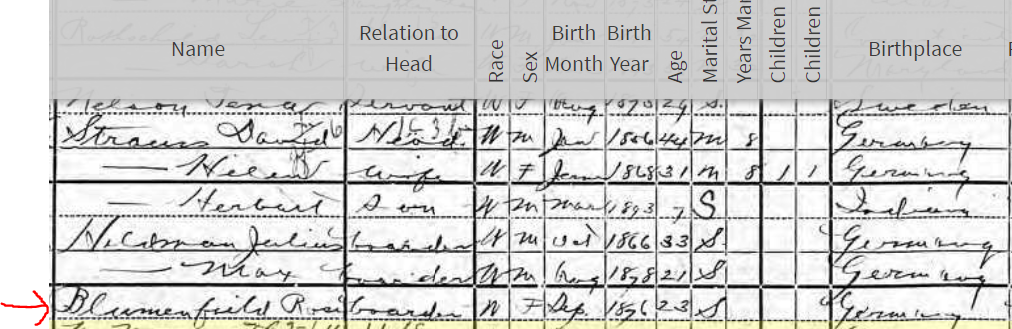 Name Relation to Head Race Sex Birth Month Birth Year Age Marital St Years Mar Children Children Birthplace
Nelson servant W F Aug 1870 29 S. Sweden
Strauss David Head W m Jan 1856 44 m 8 Germany
— Helen wife W F 1868 31 m 8 1 1 Germany
— Herbert Son W m Mar 1893 7 S Indiana
Julius boarder W m Oct 1866 33 S Germany
— Max boarder W m Aug 1878 21 S Germany
Blumenfield Rosi boarder W F Sep. 1876 23 S Germany